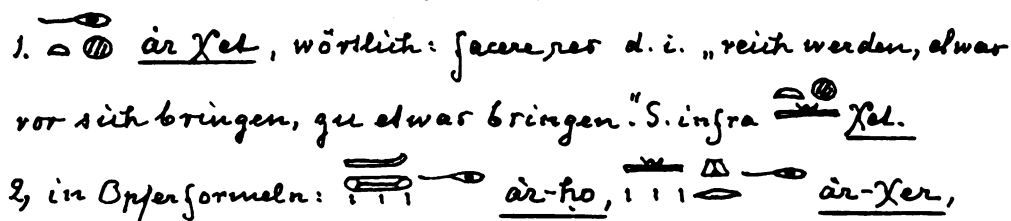 1. 𓁹𓏏𓐍 àr χet, wörtlich: facere res d. i. „reich werden, etwas
vor sich bringen, zu etwas bringen." S. infra χet.
2, in Opferformeln: àr-ḥo, àr-χer,